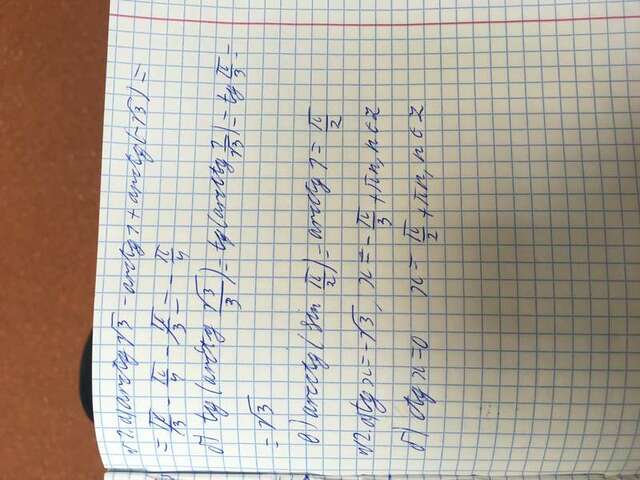 №1. а) arctg √3 - arcctg 1 + arctg(-√3) =
= π/3 - π/4 - π/3 = - π/4
б) tg(arcctg √3/3) = tg(arcctg 1/√3) = tg π/3 =
= √3
в) arcctg(sin π/2) = arcctg 1 = π/2
№2 а) tg x = -√3, x = - π/3 + πn, n∈Z
б) ctg x = 0 x = π/2 + πn, n∈Z